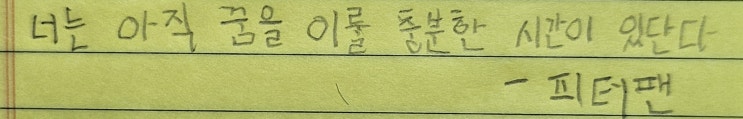 너는 아직 꿈을 이룰 충분한 시간이 있단다
- 피터팬